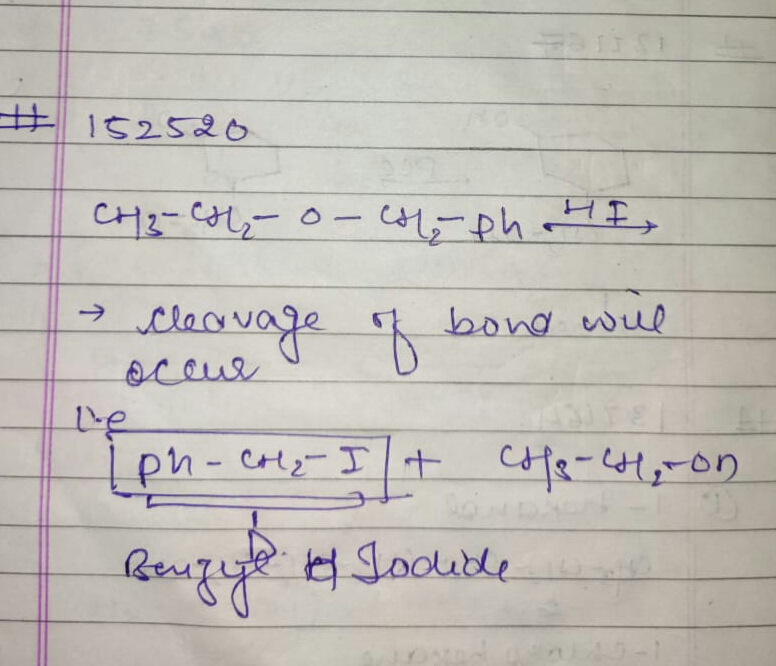 # 152520
CH3-CH2-O-CH2-Ph HI→
→ cleavage of bond will
occur
i.e
Ph-CH2-I + CH3-CH2-OH
Benzyl Iodide